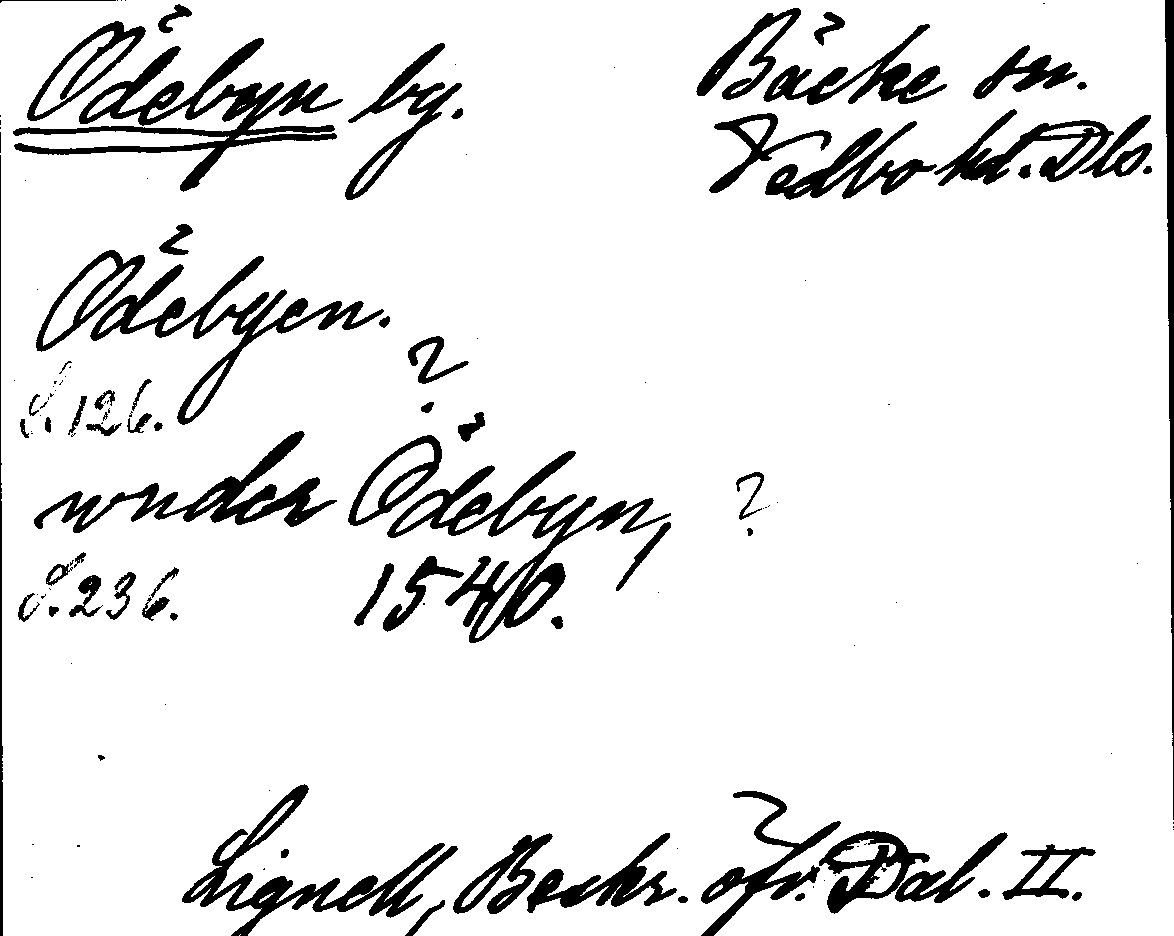 Ödebyn by.
Bäcke sn.
Vedbo hd. Dls.
Ödebyen.
S. 126.
?
under Ödebyn, ?
S. 236. 1540.
Lignell, Beskr. öfr. Dal. II.